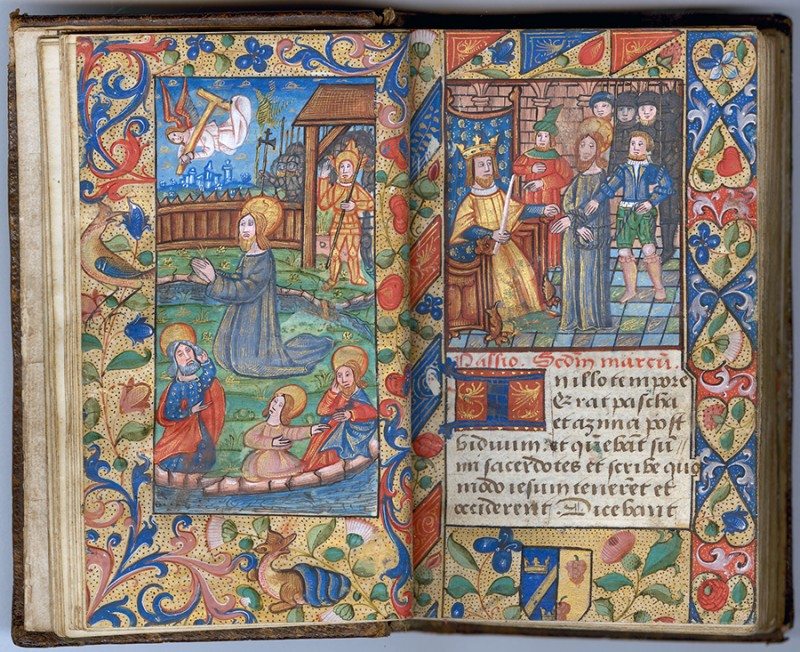 Passio. Scd̄m marcū.
In illo tempore
Erat pascha
et azima post
biduum. et querebāt sūm
mi sacerdotes et scribe quo
modo iesum tenerēt et
occiderent Dicebant